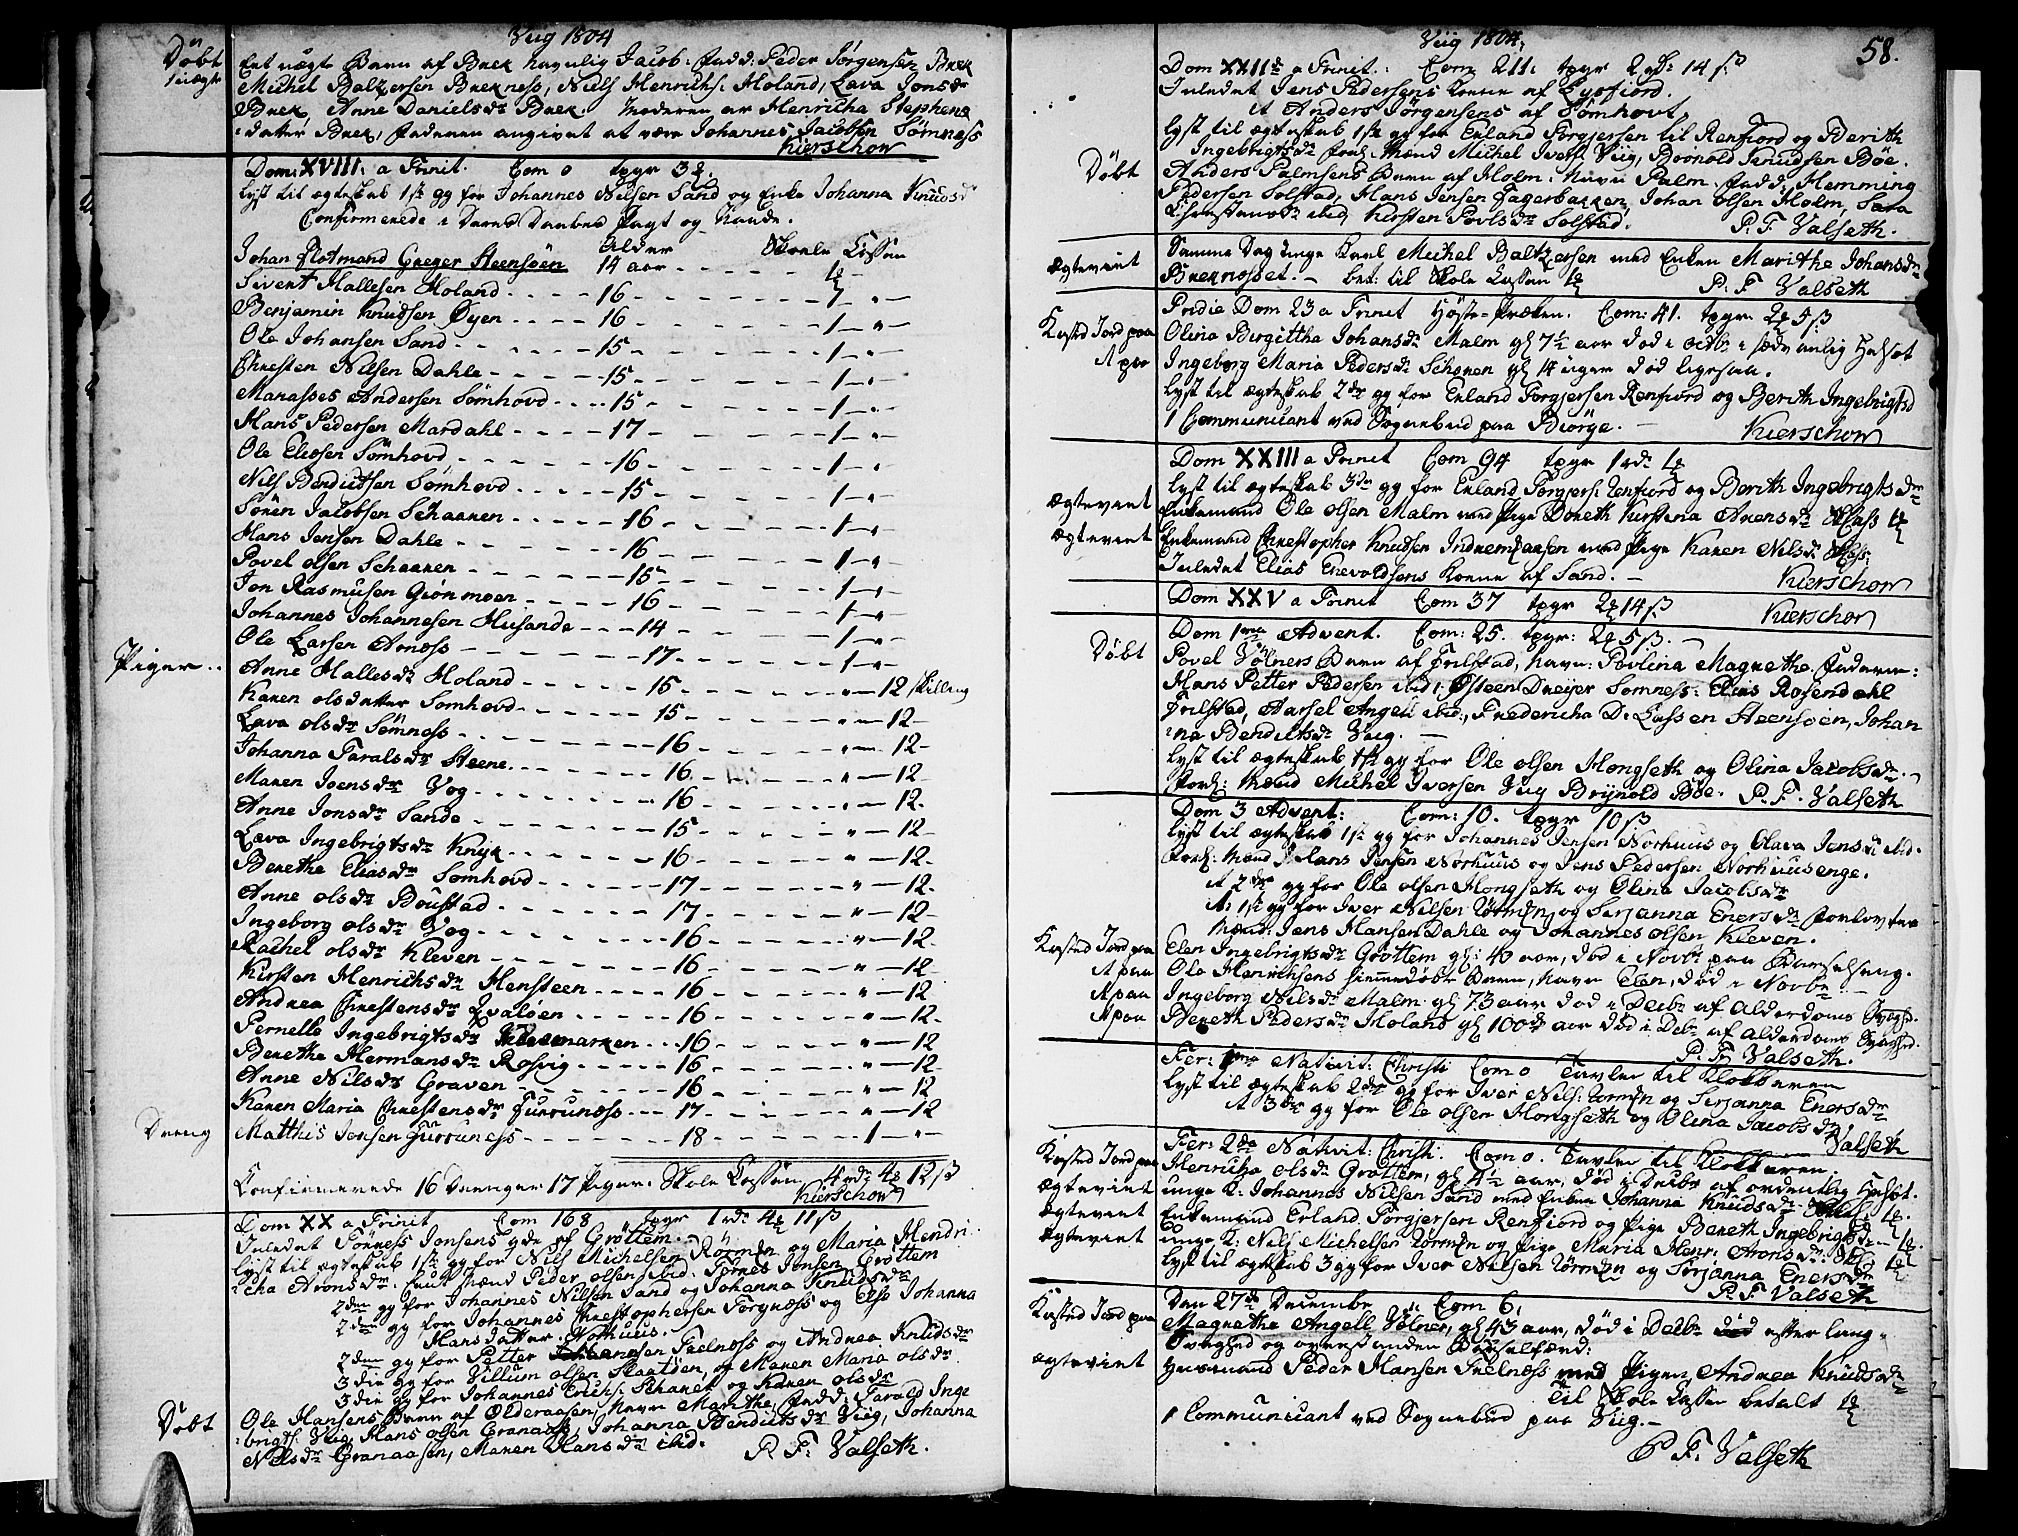 Viig 1804
Døbt
1 uægte
Eet uægte Barn af Brek navnlig Jacob. fadd: Peder Jörgensen Brek
Michel Baltzersen Brekness, Niels Henrichs: Moland, Lava Jonsdr
Brek, Anne Danielsdr Brek. Moderen er Henricha Stephens
datter Brek, faderen angivet at være Johannes Jacobsen Sømness
Kierschow
Dom: XVIII. a Trinit. Com 0 tavr 3
Lyst til ægteskab 1ste gg for Johannes Nilsen Sand og Enke Johanna Knudsdr
Confirmerede i Deres Daabes Pagt og Naade.
Alder Skole Cassen
Johan Rotmand Greger Steensøen 14 aar
Sivert Hallesen Moland 16 1
Benjamin Knudsen Øyen 16 1
Ole Johansen Sand 15 1
Christen Nilsen Dahle 15 1
Manasses Andersen Sømhovd 15 1
Hans Pedersen Mardahl 17 1
Ole Eliosen Sømhovd 16 1
Nils Bendictsen Sømhovd 15 1
Sören Jacobsen Schaanen 16 1
Hans Jensen Dahle 16 1
Povel olsen Schaanen 15 1
Jon Rasmusen Grönmoen 16 1
Johannes Johannesen Husande 14 1
Ole Larsen Arness 17 1
Piger
Anne Hallesdr Moland 15 12 skilling
Karen olsdatter Somhovd 15 12
Lava olsdr Sømness 16 12
Johanna Taralsdr Steene 16 12
Maren Joensdr Vog 16 12
Anne Jonsdr Sande 15 12
Lava Ingebrigtsdr Knyk 16 12
Berethe Eliasdr Somhovd 17 12
Anne olsdr Boustad 17 12
Ingeborg olsdr Vog 16 12
Rachel olsdr Kleven 16 12
Kirsten Henrichsdr Hensteen 16 12
Andrea Christensdr Qvaløen 16 12
Pernelle Ingebrigtsdr 16 12
Berethe Hermansdr Rosvig 16 12
Anne Nilsdr Graven 16 12
Karen Maria Christensdr Furruness 17 12
Dreng
Matthis Jensen Furruness 18 1
Confirmerede 16 Drenge 17 Piger. Skole Cassen 4 rdr 4 12 ß
Kierschow
Dom XX a Trinit Com 168 tavr 1 rdr 4 11 ß
Inledet Törness Jonsens qde af Gröttem.
Lyst til ægteskab 1ste gg for Nils Michelsen Rörmen og Maria Hendri
cha Aronsdr. Peder olsen ibid: Törnes Jonsen Gröttem
2den gg for Johannes Nilsen Sand og Johanna Knudsdr
2den gg for Johannes Christophersen Torgness og Else Johanna
Hansdatter Norhuus.
2den gg for Petter Johansen Trelness og Andrea Knudsdr
3die gg for Villum olsen Skatöen, og Maren Maria olsdr
3die gg for Johannes Erichs: Schanet og Karen olsdr
Døbt
Ole Hansens Barn af Olderaasen, navn Marithe, fadd: Tarald Inge
brigts: Viig, Hans olsen Granaas, Johanna Bendictsdr Viig, Johanna
Nilsdr Granaasen, Maren Hansdr ibid. P. F. Valseth.
Viig 1804.
58.
Dom XXIIde a Trinit. Com 211. tavr 2 rdr 14 ß
Inledet Jens Pedersens Kone af Eyefiord.
it Anders Jörgensens af Sömhovt,
Lyst til ægteskab 1ste gg for Erland Torgjersen til Renfiord og Berith
Ingebrigtsdr forl: Mænd Michel Ivers: Viig, Brønold Knudsen Böe.
Døbt
Anders Palmsens Barn af Holm: navn Palm. fadd: Hemming
Pedersen Solstad, Hans Jensen Fagerbakken, Johan olsen Holm, Sara
Christensdr ibid, Kirsten Povlsdr Solstad. P. F. Valseth.
Ægteviet
Samme Dag unge Karl Michel Baltzersen med Enken Marithe Johansdr
Breknesset. bet: til Skole Cassen 1
P. F Valseth
Pridie Dom 23 a Trinit Höste-Præken. Com: 41. tavr. 2 5 ß
Kasted Jord paa
Olina Birgittha Johansdr Malm gl 7½ aar død i octbr i sædvanlig Halsot
it paa
Ingeborg Maria Pedersdr Schonen gl 14 uger død ligesaa.
Lyst til ægteskab 2den gg for Erland Torgjersen Renfiord og Berith Ingebrigtsd
1 Communicant ved Sognebud paa Biörge. Kierschow
Dom XXIII a Trinit Com 94 tavr 1 rdr 1
Lyst til ægteskab 3die gg for Erland Torgjers: Renfiord og Berith Ingebrigtsdr
Ægteviet
Enkemand Ole olsen Malm med Pige Boreth Kirstina Arensdr 1
Ægteviet
Enkemand Christopher Knudsen med Pige Karen Nilsdr
Inledet Elias Enevoldsens Kone af Sand. Kierschow
Dom XXV a Trinit Com 37 tavr 2 14 ß Kierschow
Dom 1ma Advent. Com: 25. tavr: 2 5 ß.
Døbt
Povel Völners Barn af Tilstad, navn: Povlina Magrethe. fadderne:
Hans Petter Pedersen ibid, Østeen Dreijer Somness: Elias Rosendahl
Tilstad, Aarsel Angell ibid., Fredericha D: Lassen Steensøen, Johan
na Bendictsdr Viig.
Lyst til ægteskab 1ste gg for Ole olsen Hongseth og Olina Jacobsdr.
Forl: Mænd Michel Iversen Viig Brijnold Böe. P. F. Valseth
Dom 3 Advent: Com: 10. tavr 10 ß
Lyst til ægteskab 1ste gg for Johannes Jensen Norhuus og Olava Jensdr ibid.
Forl: Mænd Hans Jensen Norhuus og Jens Pedersen Norhuusenge.
it 2den gg for Ole olsen Hongseth og Olina Jacobsdr
it: 1ste gg for Iver Nilsen Rörmen og Serjanna Enersdr. forlovter
Mænd: Jens Hansen Dahle og Johannes olsen Kleven.
Kasted Jord paa
Elen Ingebrigtsdr Grottem gl: 40 aar, død i Novbr paa Barselseng.
it paa
Ole Henrichsens hiemmedøbte Barn, navn Elen, død i Novbr
it paa
Ingeborg Nilsdr Malm gl 73 aar død i Decbr af Alderdoms
it paa
Bereth Pedersdr Moland gl 100de aar død i Debr af Alderdoms
P. F. Valseth.
Fer: 1ma Nativit: Christi Com 0 Tavlen til Klokkeren
Lyst til ægteskab 2den gg for Iver Nils: Rörmen og Serjanna Enersdr
it 3die gg for Ole olsen Hongseth og Olina Jacobsdr
Valseth
Fer: 2da Nativit: Christi. Com 0. Tavlen til Klokkeren.
Kasted Jord paa
Henricha olsdr Grottem, gl 4½ aar, død i Decbr af ordentlig Halsot.
Ægteviet
unge K: Johannes Nilsen Sand med Enken Johanna Knudsdr 1
Ægteviet
Enkemand Erland Torgjersen Renfiord og Pige Bereth Ingebrigtsdr 1
Ægteviet
unge K: Nils Michelsen Rörmen og Pige Maria Henr: Aronsdr 1
Lyst til ægteskab 3 gg for Iver Nilsen Rörmen og Serjanna Enersdr
P. F. Valseth
Den 27de December Com 6.
Kasted Jord paa
Magrethe Angell Völner, gl 43 aar, død i Decbr død efter lang
Svaghed og overstanden Barselfærd.
Ægteviet
Huusmand Peder Hansen Trelness med Pigen Andrea Knudsdr
Til Skole Cassen betalt 1
1 Communicant ved Sognebud paa Viig.
P. F. Valseth